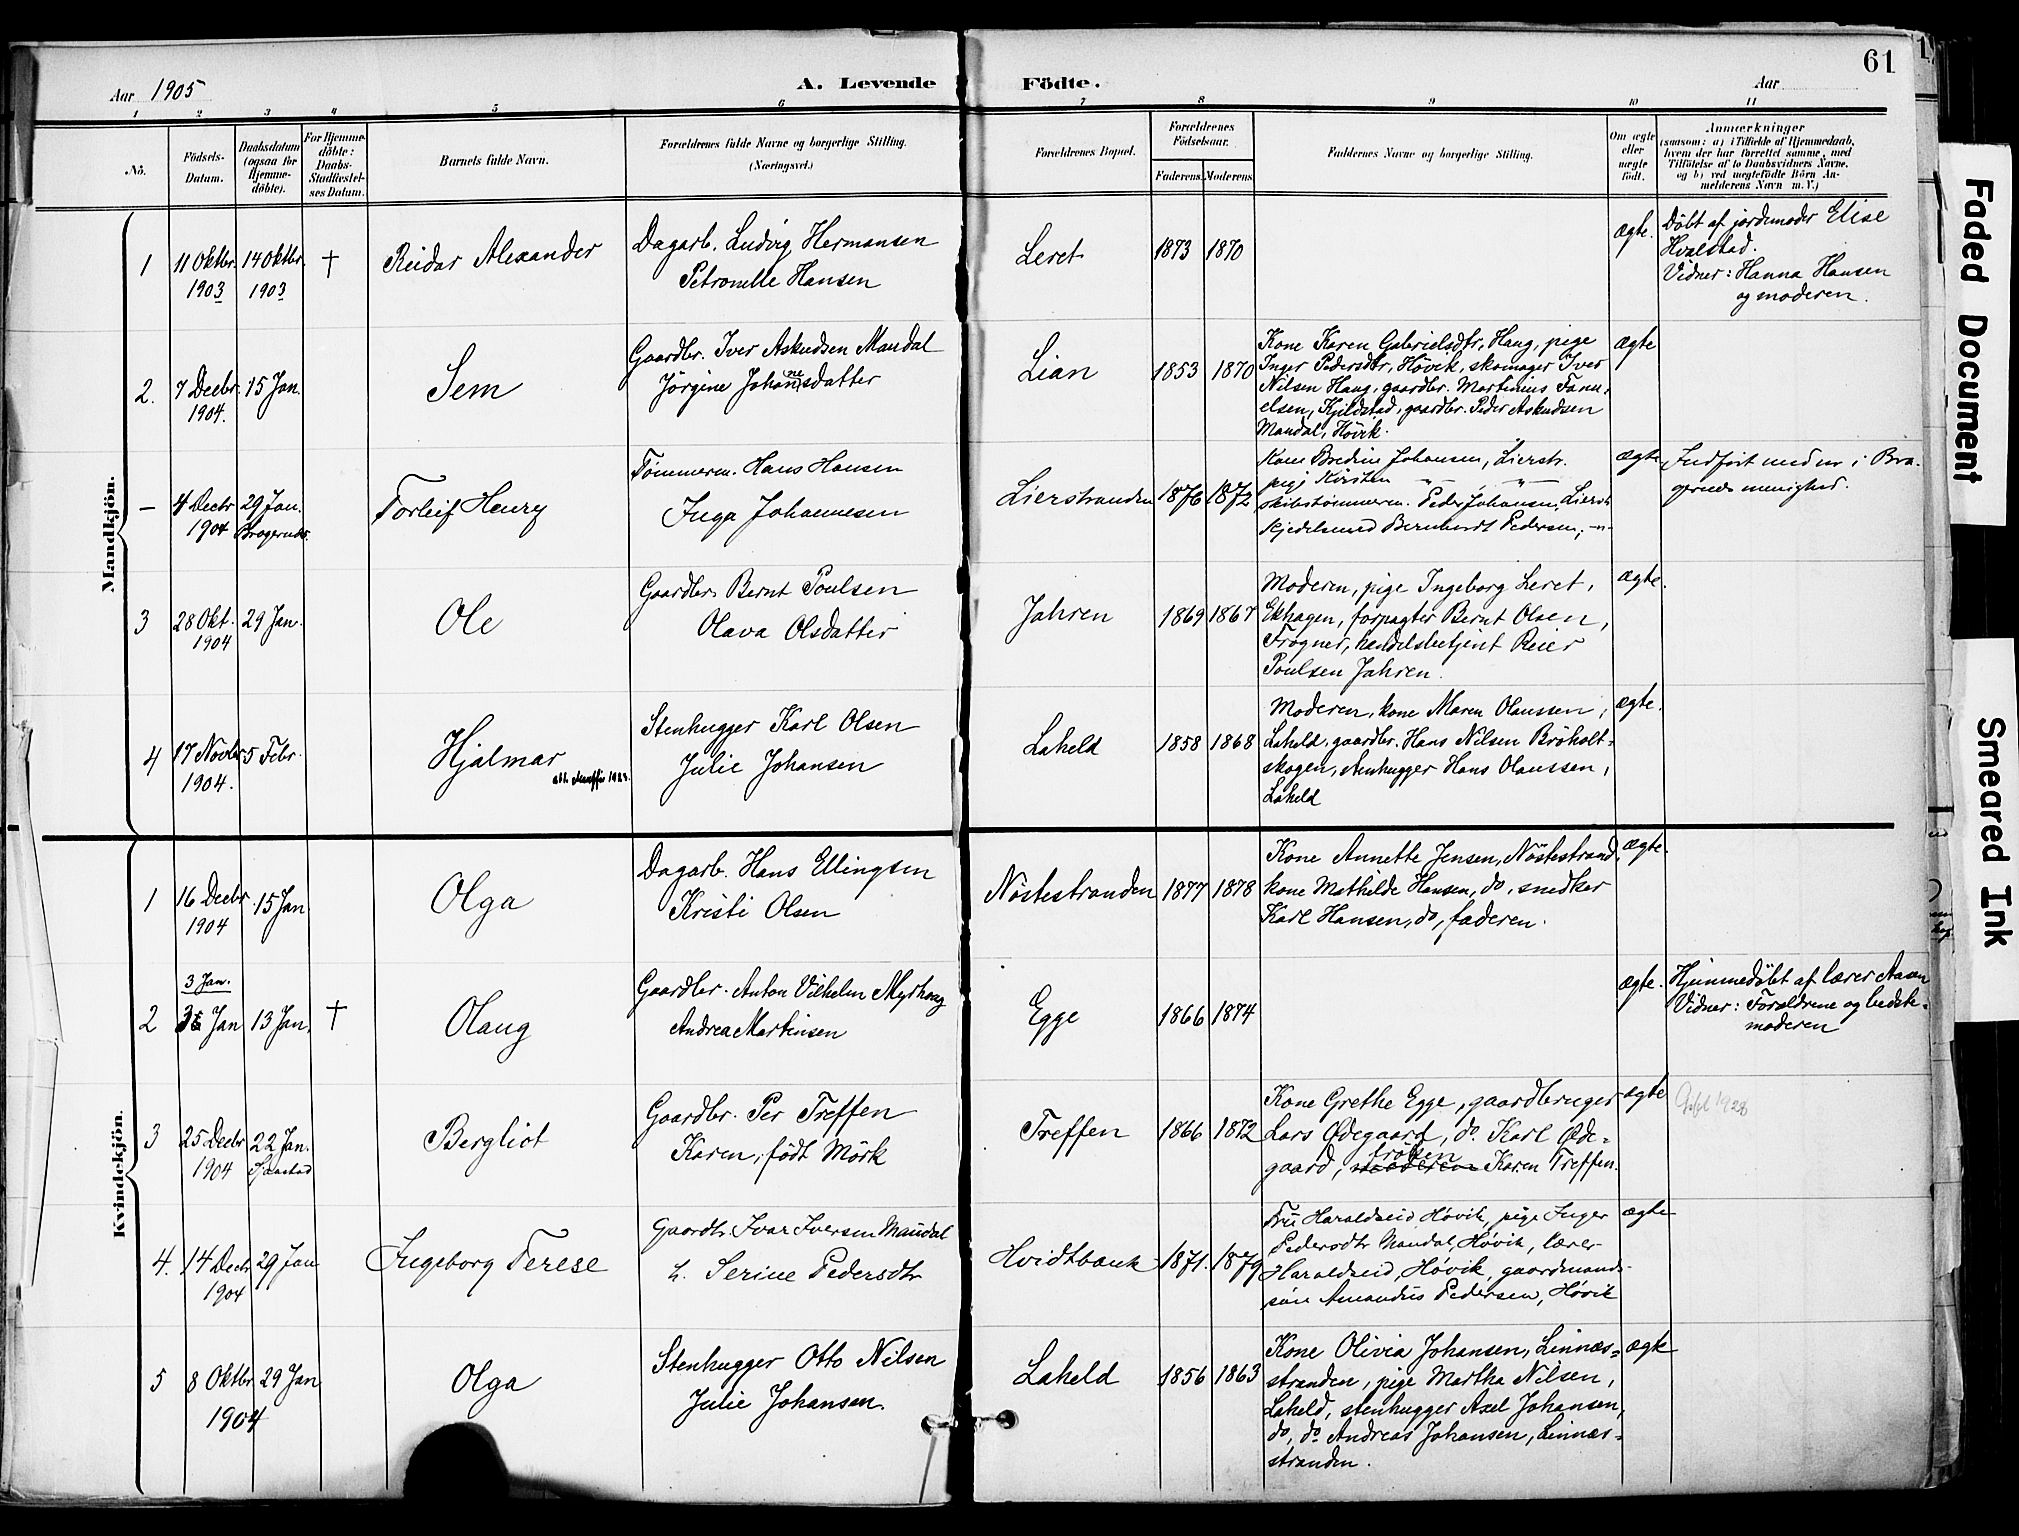 61
Aar 1905
A. Levende Födte.
Aar
1 2 3 4 5 6 7 8 9 10 11
No.
Födsels-Datum.
Daabsdatum (ogsaa for Hjemmedöbte).
For Hjemmedöbte: Daabs-Stadfæstelses Datum.
Barnets fulde Navn.
Forældrenes fulde Navne og borgerlige Stilling.
(Næringsvei.)
Forældrenes Bopæl.
Forældrenes Födselsaar.
Faderens Moderens
Faddernes Navne og borgerlige Stilling.
Om ægte eller uægte födt.
Anmærkninger
(saasom: a) i Tilfælde af Hjemmedaab, hvem der har forrettet samme, med Tilföielse af to Daabsvidners Navne, og b) ved uægtefödte Börn Anmelderens Navn m. V.)
Mandkjön.
1
11 Oktbr.
1903
14 Oktbr.
1903
†
Reidar Alexander
Dagarb. Ludvig Hermansen
Petronelle Hansen
Leret
1873
1870
ægte.
Döbt af jordemoder Elise
Hvalstad.
Vidner: Hanna Hansen
og moderen.
2.
7 Decbr.
1904.
15 Jan.
Sem
Gaardbr. Iver Askudsen Maudal
Jörgine Johannesdatter
Lian
1853
1870
Kone Karen Gabrielsdtr, Haug, pige
Inger Pedersdtr, Hövik, skomager Iver
Nilsen Haug, gaardbr. Martinius
elsen, Kjildstad, gaardbr. Peder Askudsen
Maudal, Hövik.
ægte
–
4 Decbr
1904
29 Jan.
Bragernæs.
Torleif Henry
Tömmerm. Hans Hansen
Inga Johannesen
Lierstranden
1876
1872
Kone Bredine Johansen, Lierstr.
pige Kirsten –"– –"–
skibstömmerm. Peder Johansen, Lierstr
Kjedelsmed Bernhardt Pedersen, –"–
ægte
Indfört med nr i Bra-
gernes menighed.
3
28 Okt.
1904
29 Jan.
Ole
Gaardbr. Bernt Poulsen
Olava Olsdatter
Jahren
1869
1867
Moderen, pige Ingeborg Leret,
Ekhagen, forpagter Bernt Olsen,
Frogner, handelsbetjent Reier
Poulsen Jahren.
ægte.
4
17 Novbr
1904.
5 Febr.
Hjalmar
Stenhugger Karl Olsen
Julie Johansen
Laheld
1858
1868
Moderen, kone Maren Olaussen,
Laheld, gaardbr. Hans Nilsen Bröholt-
skogen, stenhugger Hans Olaussen,
Laheld
ægte.
Kvindekjön.
1
16 Decbr.
1904
15 Jan
Olga
Dagarb. Hans Ellingsen
Kristi Olsen
Nöstestranden
1877
1878
Kone Annette Jensen, Nöstestrand,
kone Mathilde Hansen, do, snedker
Karl Hansen, do, faderen.
ægte.
2
3 Jan.
Jan
13 Jan.
†
Olaug
Gaardbr. Anton Vilhelm Myrhaug
Andrea Martinsen
Egge
1866
1874
ægte.
Hjemmedöbt af lærer Aasen
Vidner: Forældrene og bedste-
moderen
3
25 Decbr
1904
22 Jan.
Bergliot
Gaardbr. Per Treffen
Karen, födt Mörk
Treffen
1866
1872
Kone Grethe Egge, gaardbruger
Lars Ødegaard, do Karl Øde-
gaard, moderen fröken Karen Treffen.
ægte
1928
4.
14 Decbr
1904
29 Jan
Ingeborg Terese
Gaardbr. Ivar Iversen Maudal
h. Serine Pedersdtr
Hvidtbank
1871.
1879
Fru Haraldseid, Hövik, pige Inger
Pedersdtr Maudal, Hövik, lærer
Haraldseid, Hövik, gaardmands-
sön Amandus Pedersen, Hövik
ægte
5
8 Oktbr
1904
29 Jan
Olga
Stenhugger Otto Nilsen
Julie Johansen.
Laheld
1856
1863
Kone Olivia Johansen, Linnes-
stranden, pige Martha Nilsen,
Laheld, stenhugger Axel Johansen,
do, do Andreas Johansen, Linnes-
stranden.
ægte
Faded Document
Smeared Ink